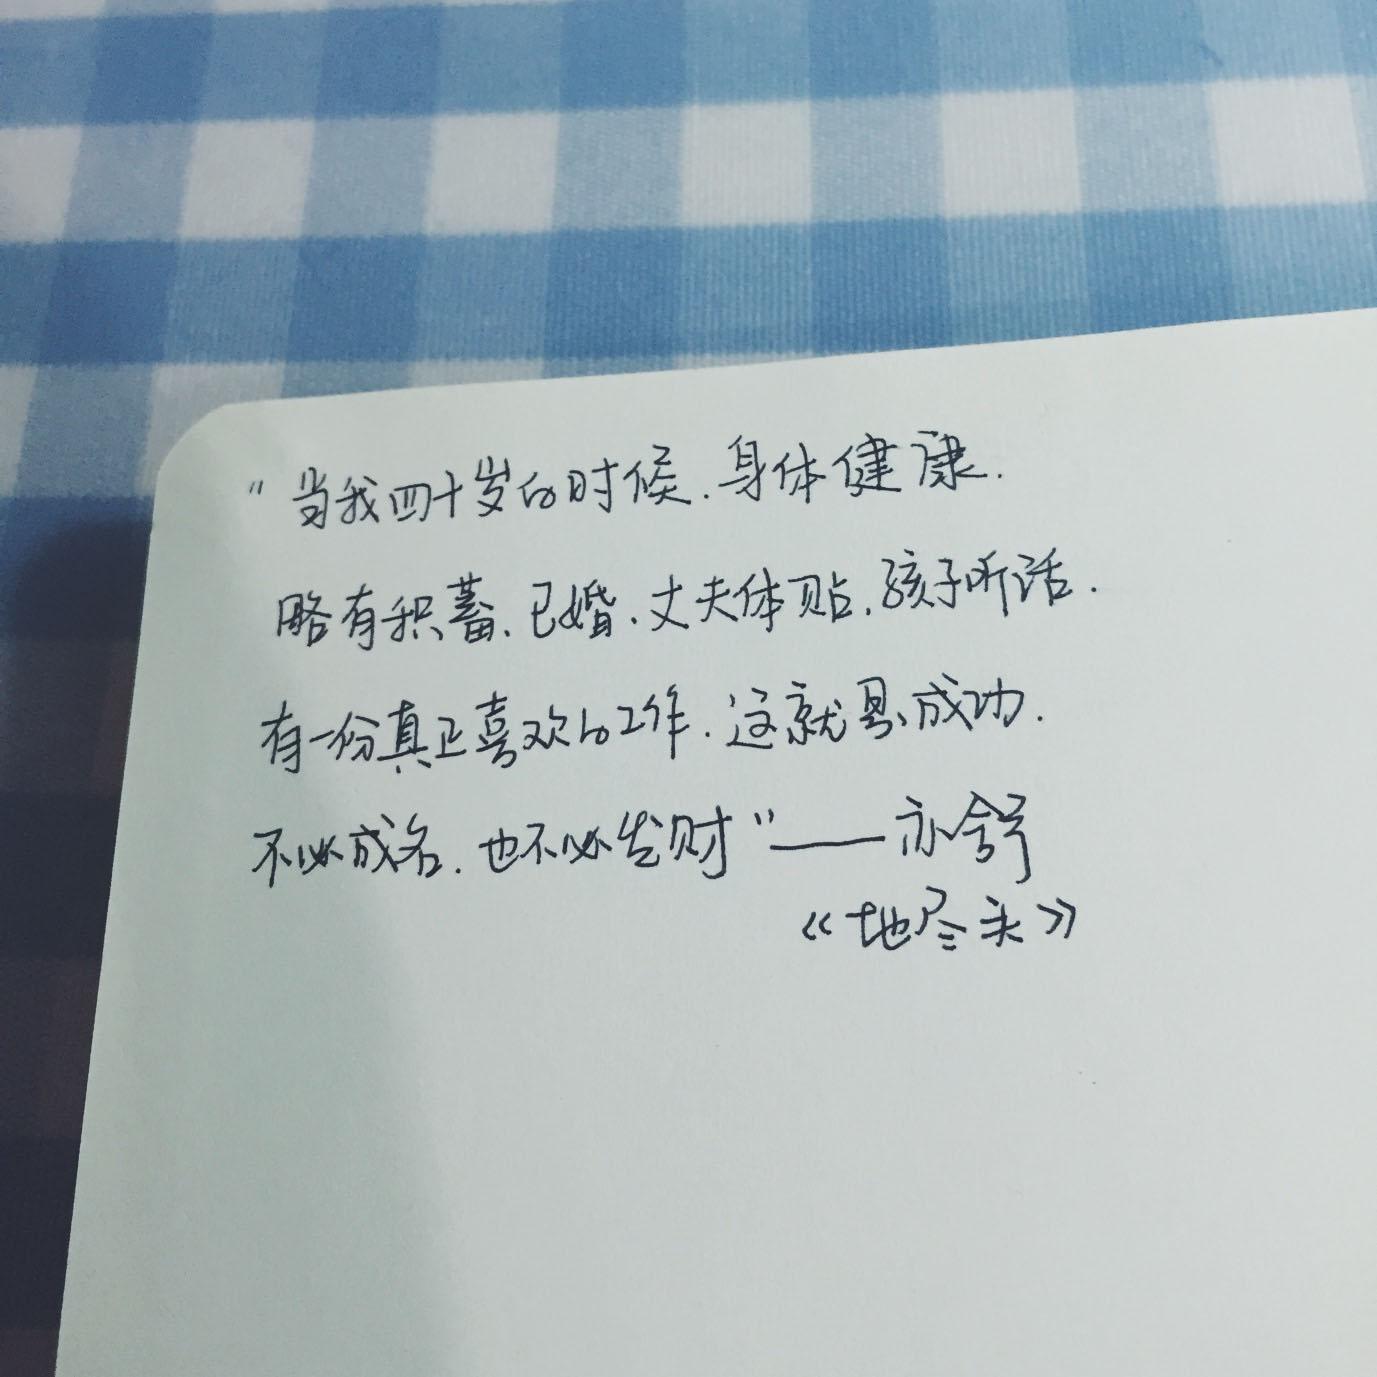 "当我四十岁的时候.身体健康.
略有积蓄.已婚.丈夫体贴.孩子听话.
有一份真正喜欢的工作.这就是成功.
不必成名.也不必发财"——亦舒
《地尽头》